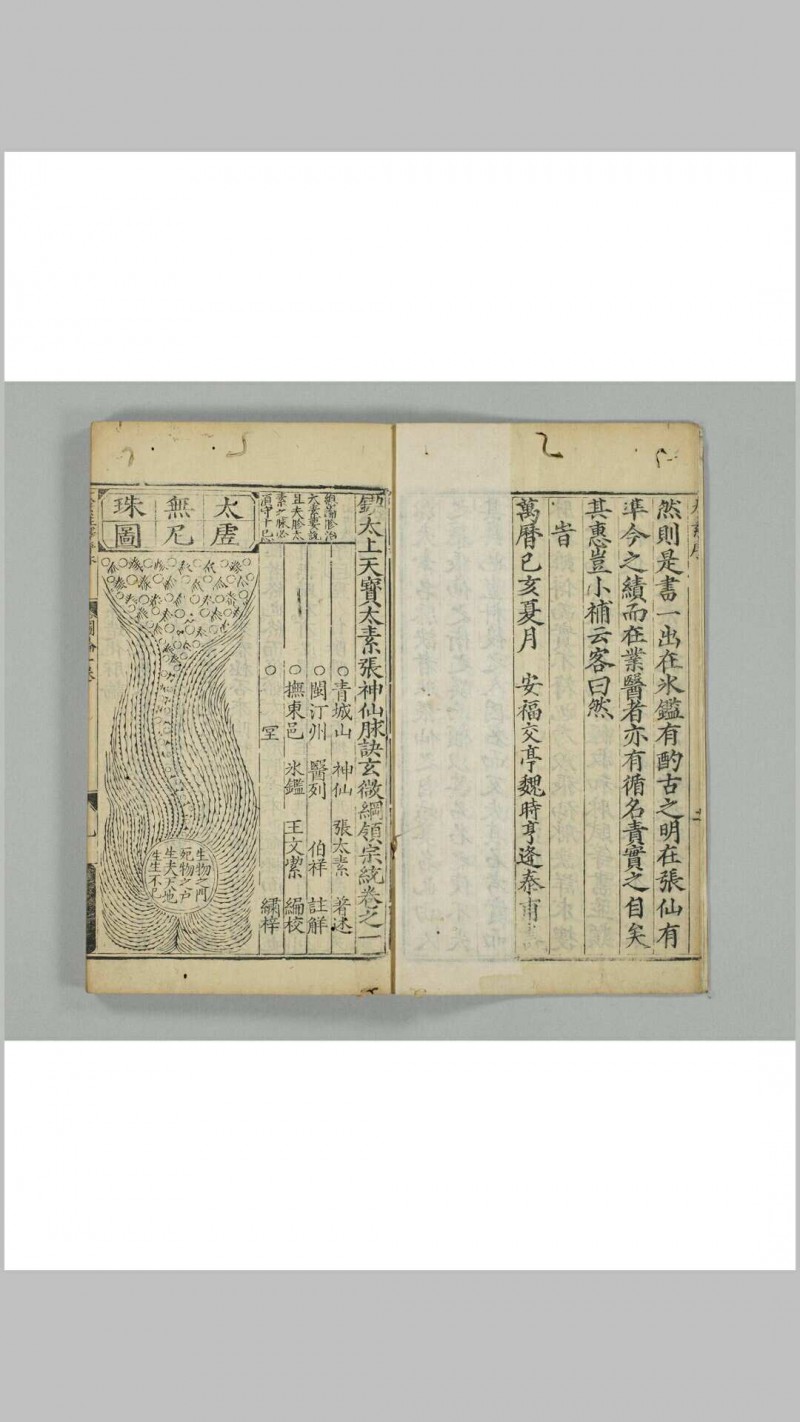 然則是書一出在氷鑑有酌古之明在張仙有
準今之績而在業醫者亦有循名責實之自矣
其惠豈小補云客曰然
旹
萬曆己亥夏月 安福交亭魏時亨逢泰甫
鐫太上天寶太素張神仙脉訣玄微綱領宗統卷之一
○青城山 神仙 張太素 著述
○閩汀州 醫列 伯祥 註解
○撫東邑 氷鑑 王文㓗 編校
○ 繡梓
太虛
無凡
珠圖
生物之門
死物之户
生夫天地
生生不已